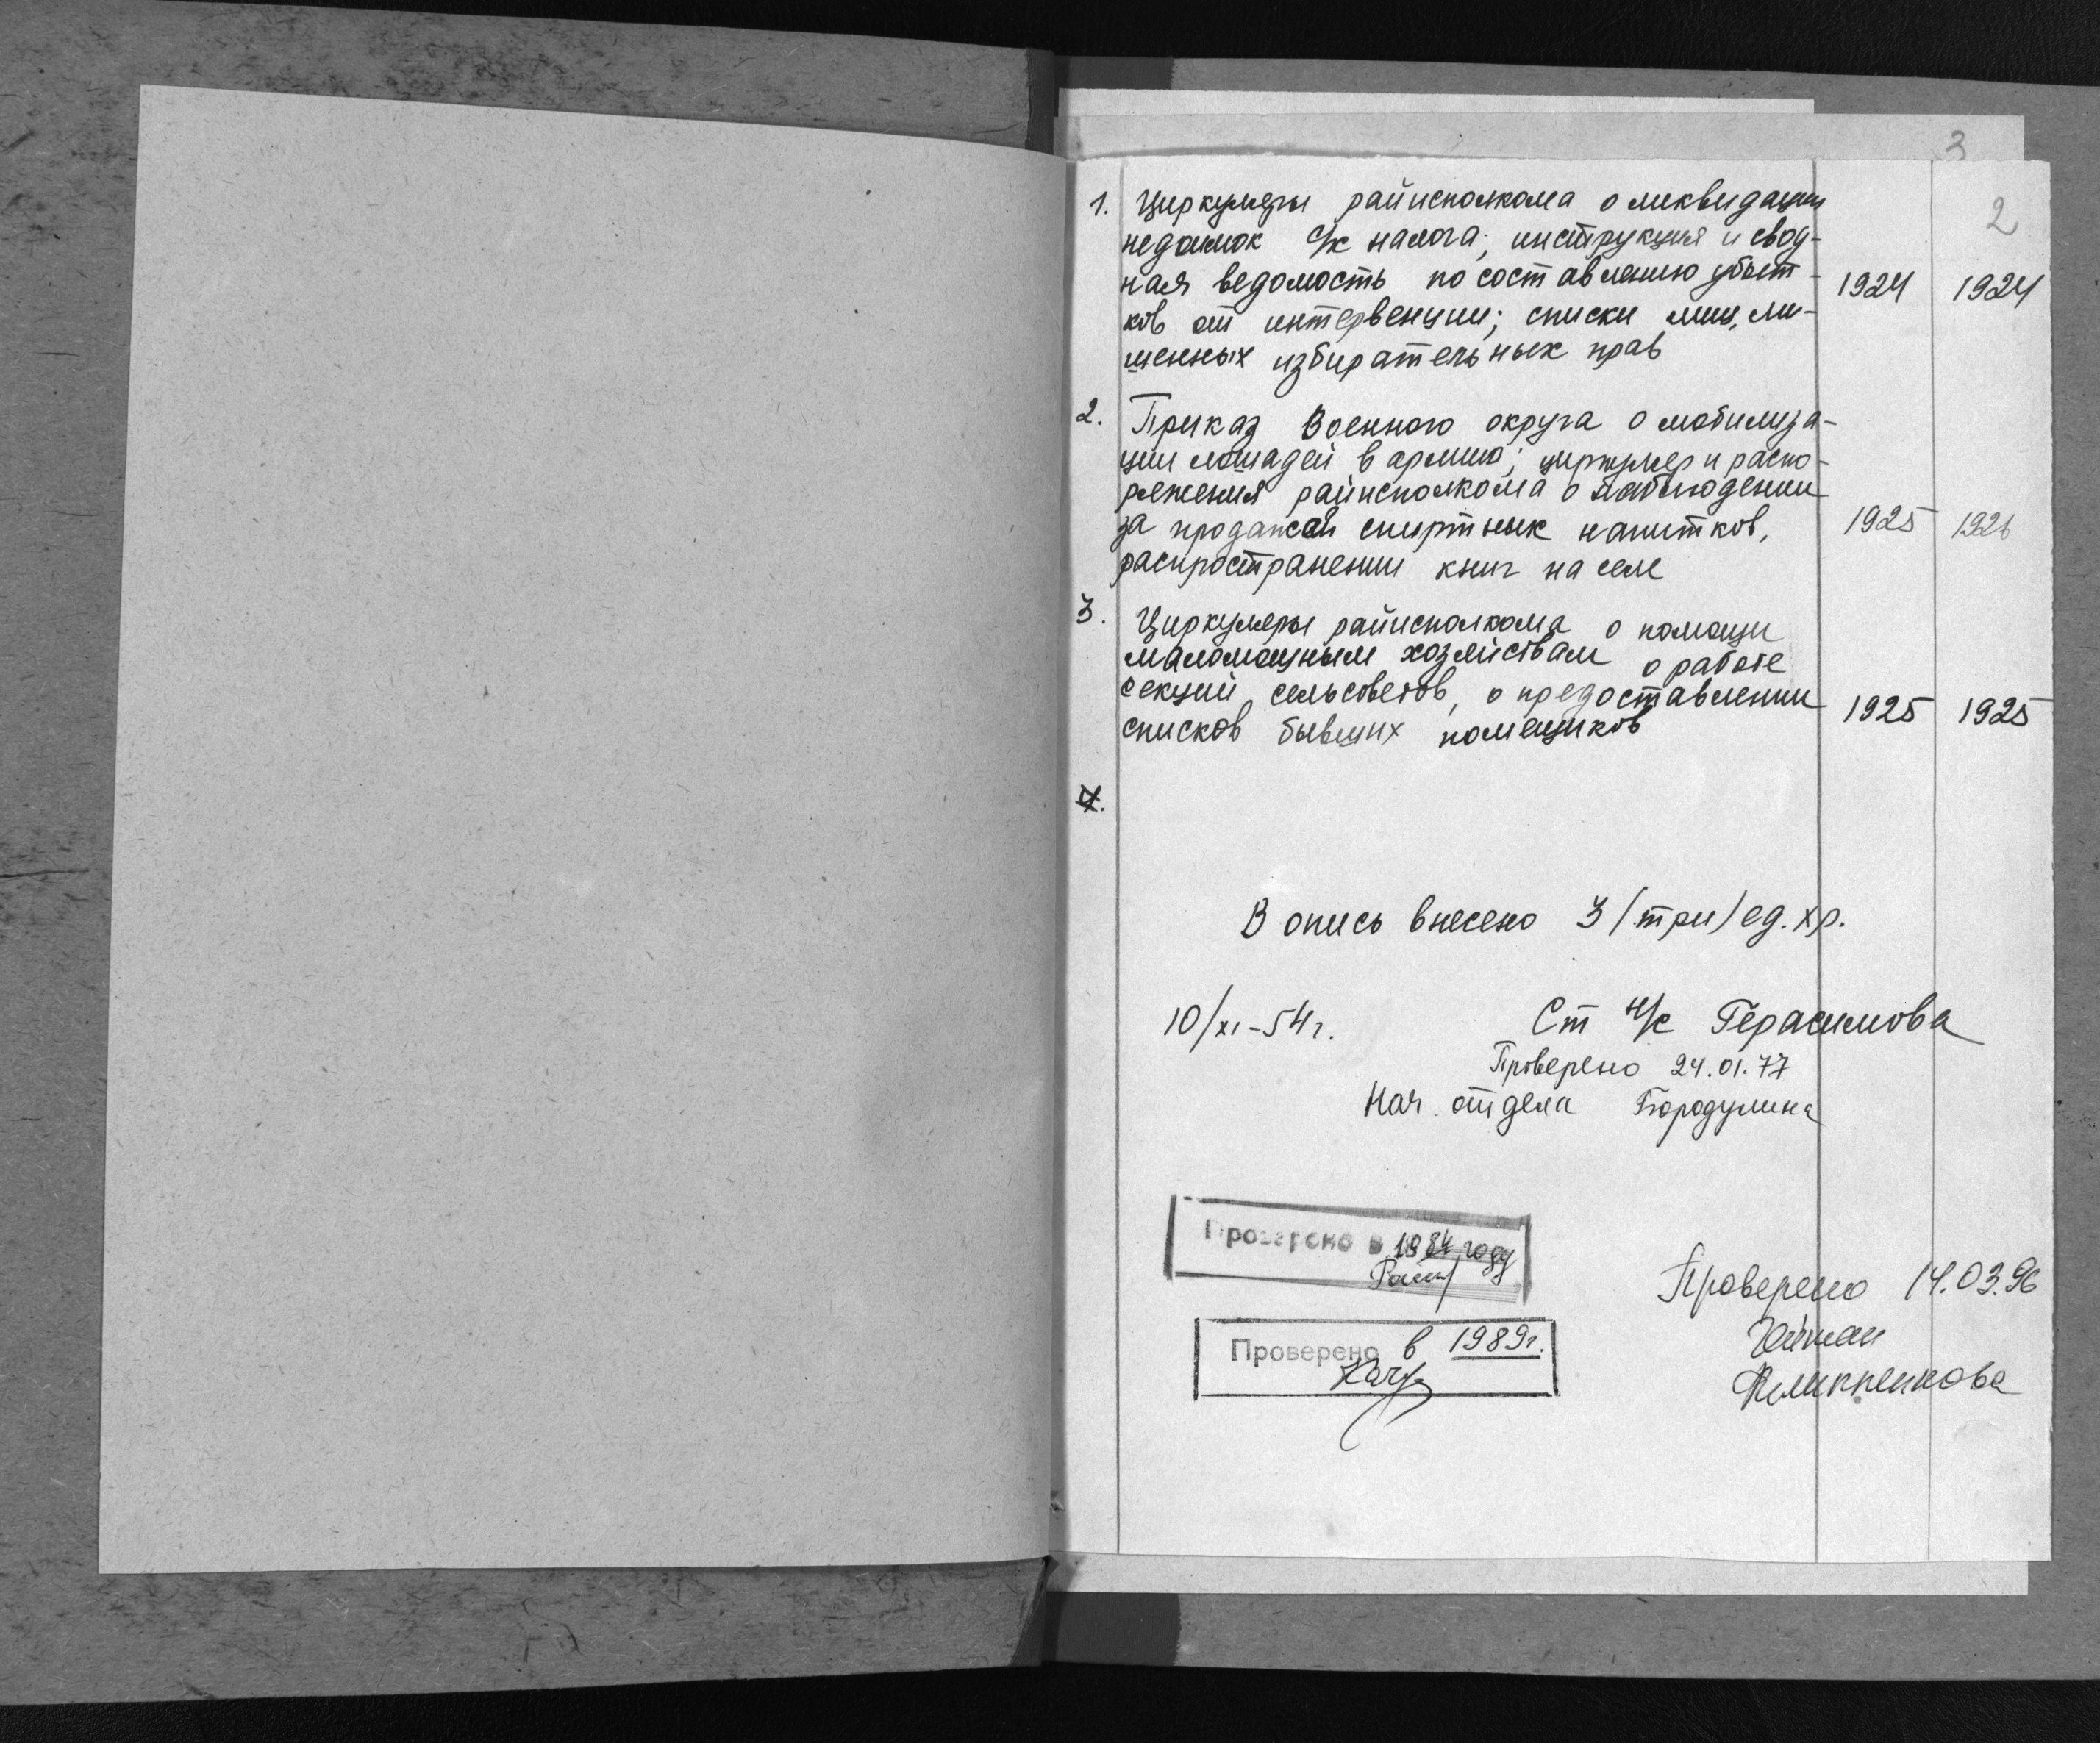 3
2
1. Циркуляры райисполкома о ликвидации
недоимок с/х налога; инструкция и свод-
ная ведомость по составлению убыт-
1924 1924
ков от интервенции; списки лиц, ли-
шенных избирательных прав
2. Приказ Военного округа о мобилиза-
ции лошадей в армию; циркуляр и распо-
ряжения райисполкома о наблюдении
за продажей спиртных напитков,
1925 1926
распространении книг на селе
3. Циркуляры райисполкома о помощи
маломощным хозяйствам о работе
секций сельсоветов, о предоставлении
1925 1925
списков бывших помещиков
4.
В опись внесено 3 (три) ед. хр.
10/XI-54 г. Ст н/с Герасимова
Проверено 24.01.77
Нач. отдела Бородулина
Проверено в 1984 году
Проверено 14.03.96
Проверено в 1989 г.